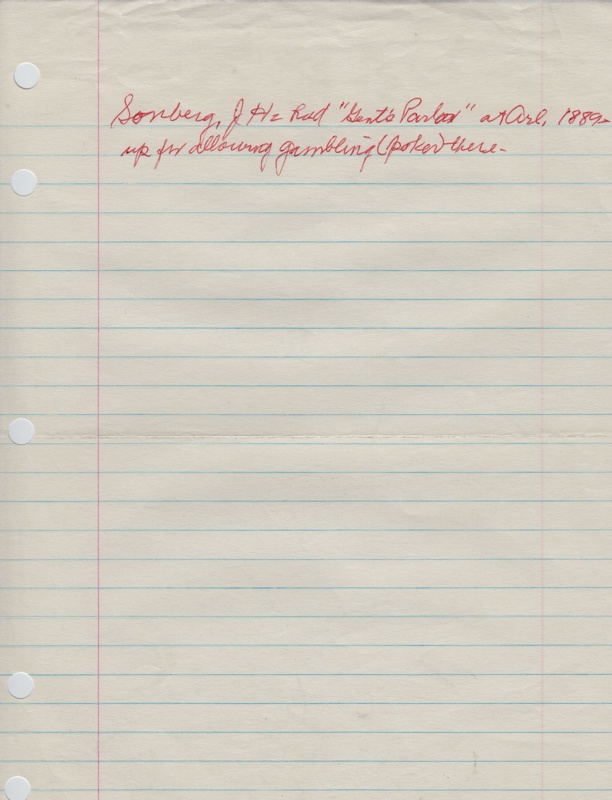 Sonberg, J H = Had "Gent's Parlor" at Arl. 1889-
up for allowing gambling (poker) there-